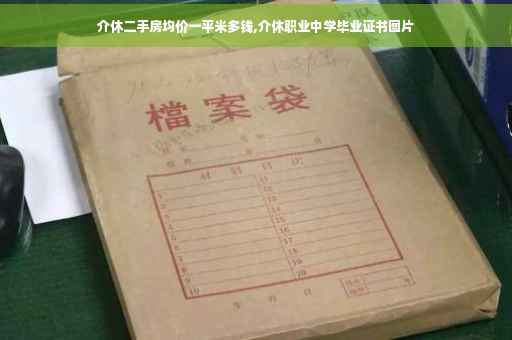 介休二手房均价一平米多钱,介休职业中学毕业证书图片
檔案袋
材料目次
1 11
2 12
3 13
4 14
5 15
6 16
7 17
8 18
9 19
10 20
年 月 日